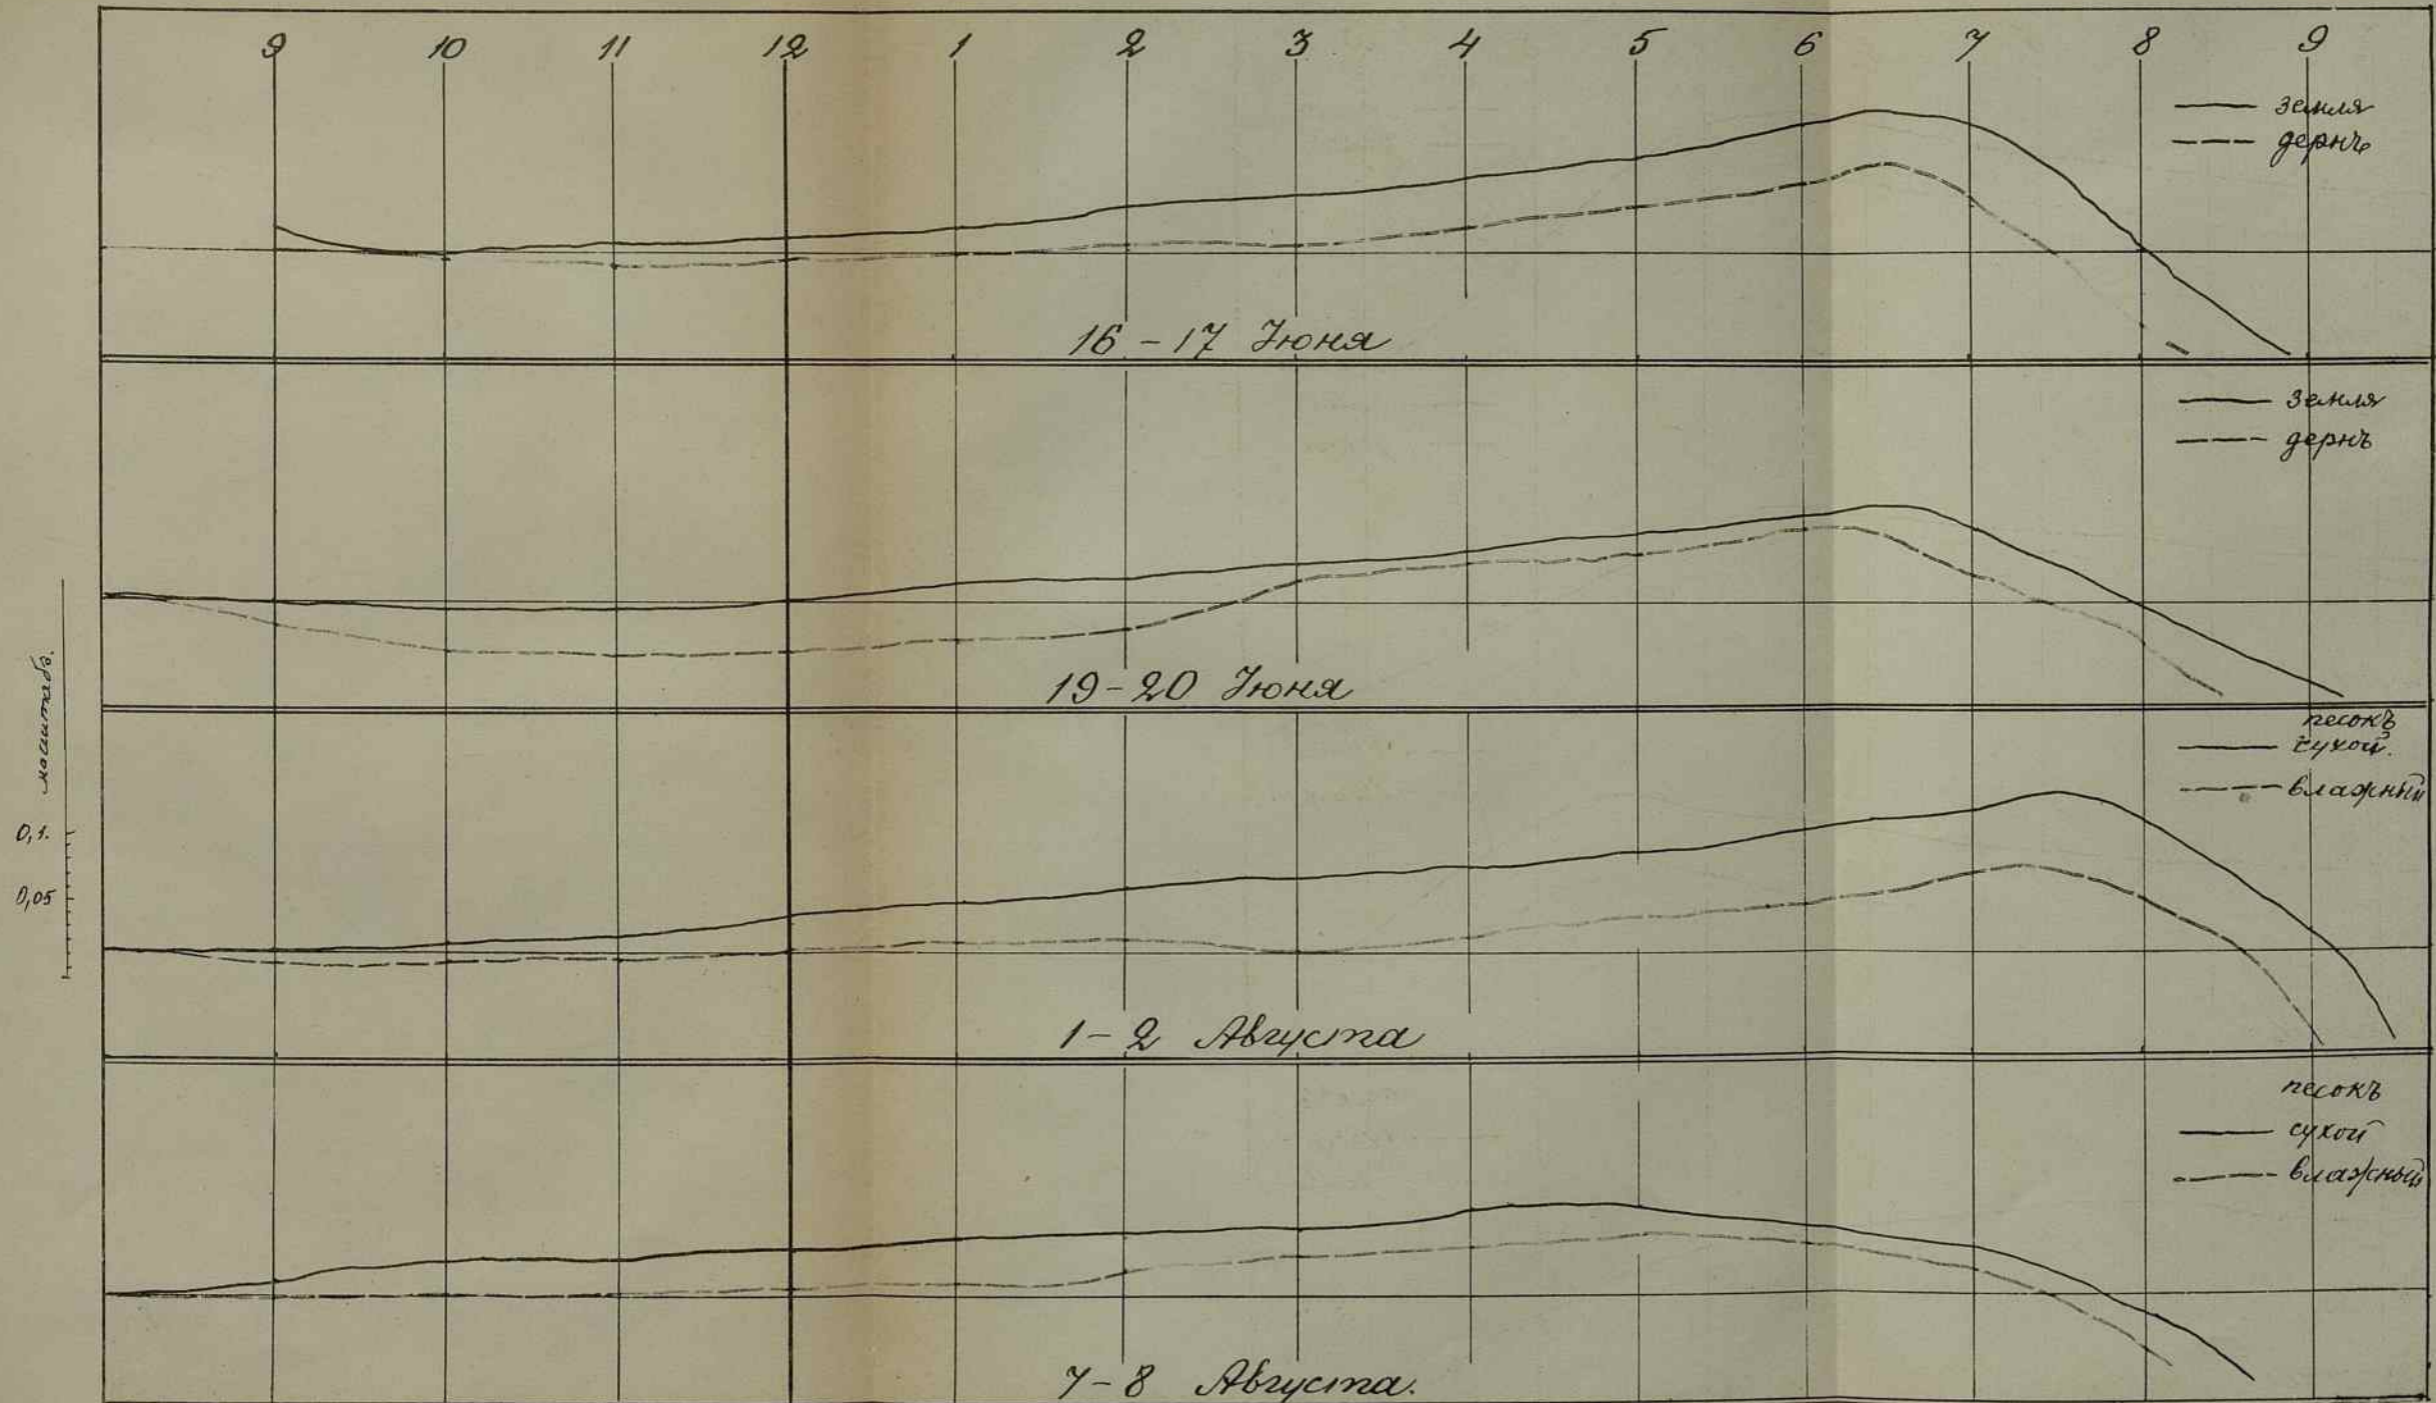 9 10 11 12 1 2 3 4 5 6 7 8 9
земля
дернъ
16 - 17 Июня
земля
дернъ
19 - 20 Июня
масштабъ.
0,1.
0,05
песокъ
сухой.
влажный
1 - 2 Августа
песокъ
сухой
влажный
7 - 8 Августа.